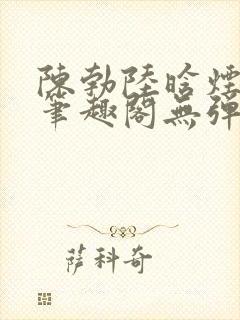 陳勃陸晗煙
筆趣閣無彈
萨科奇